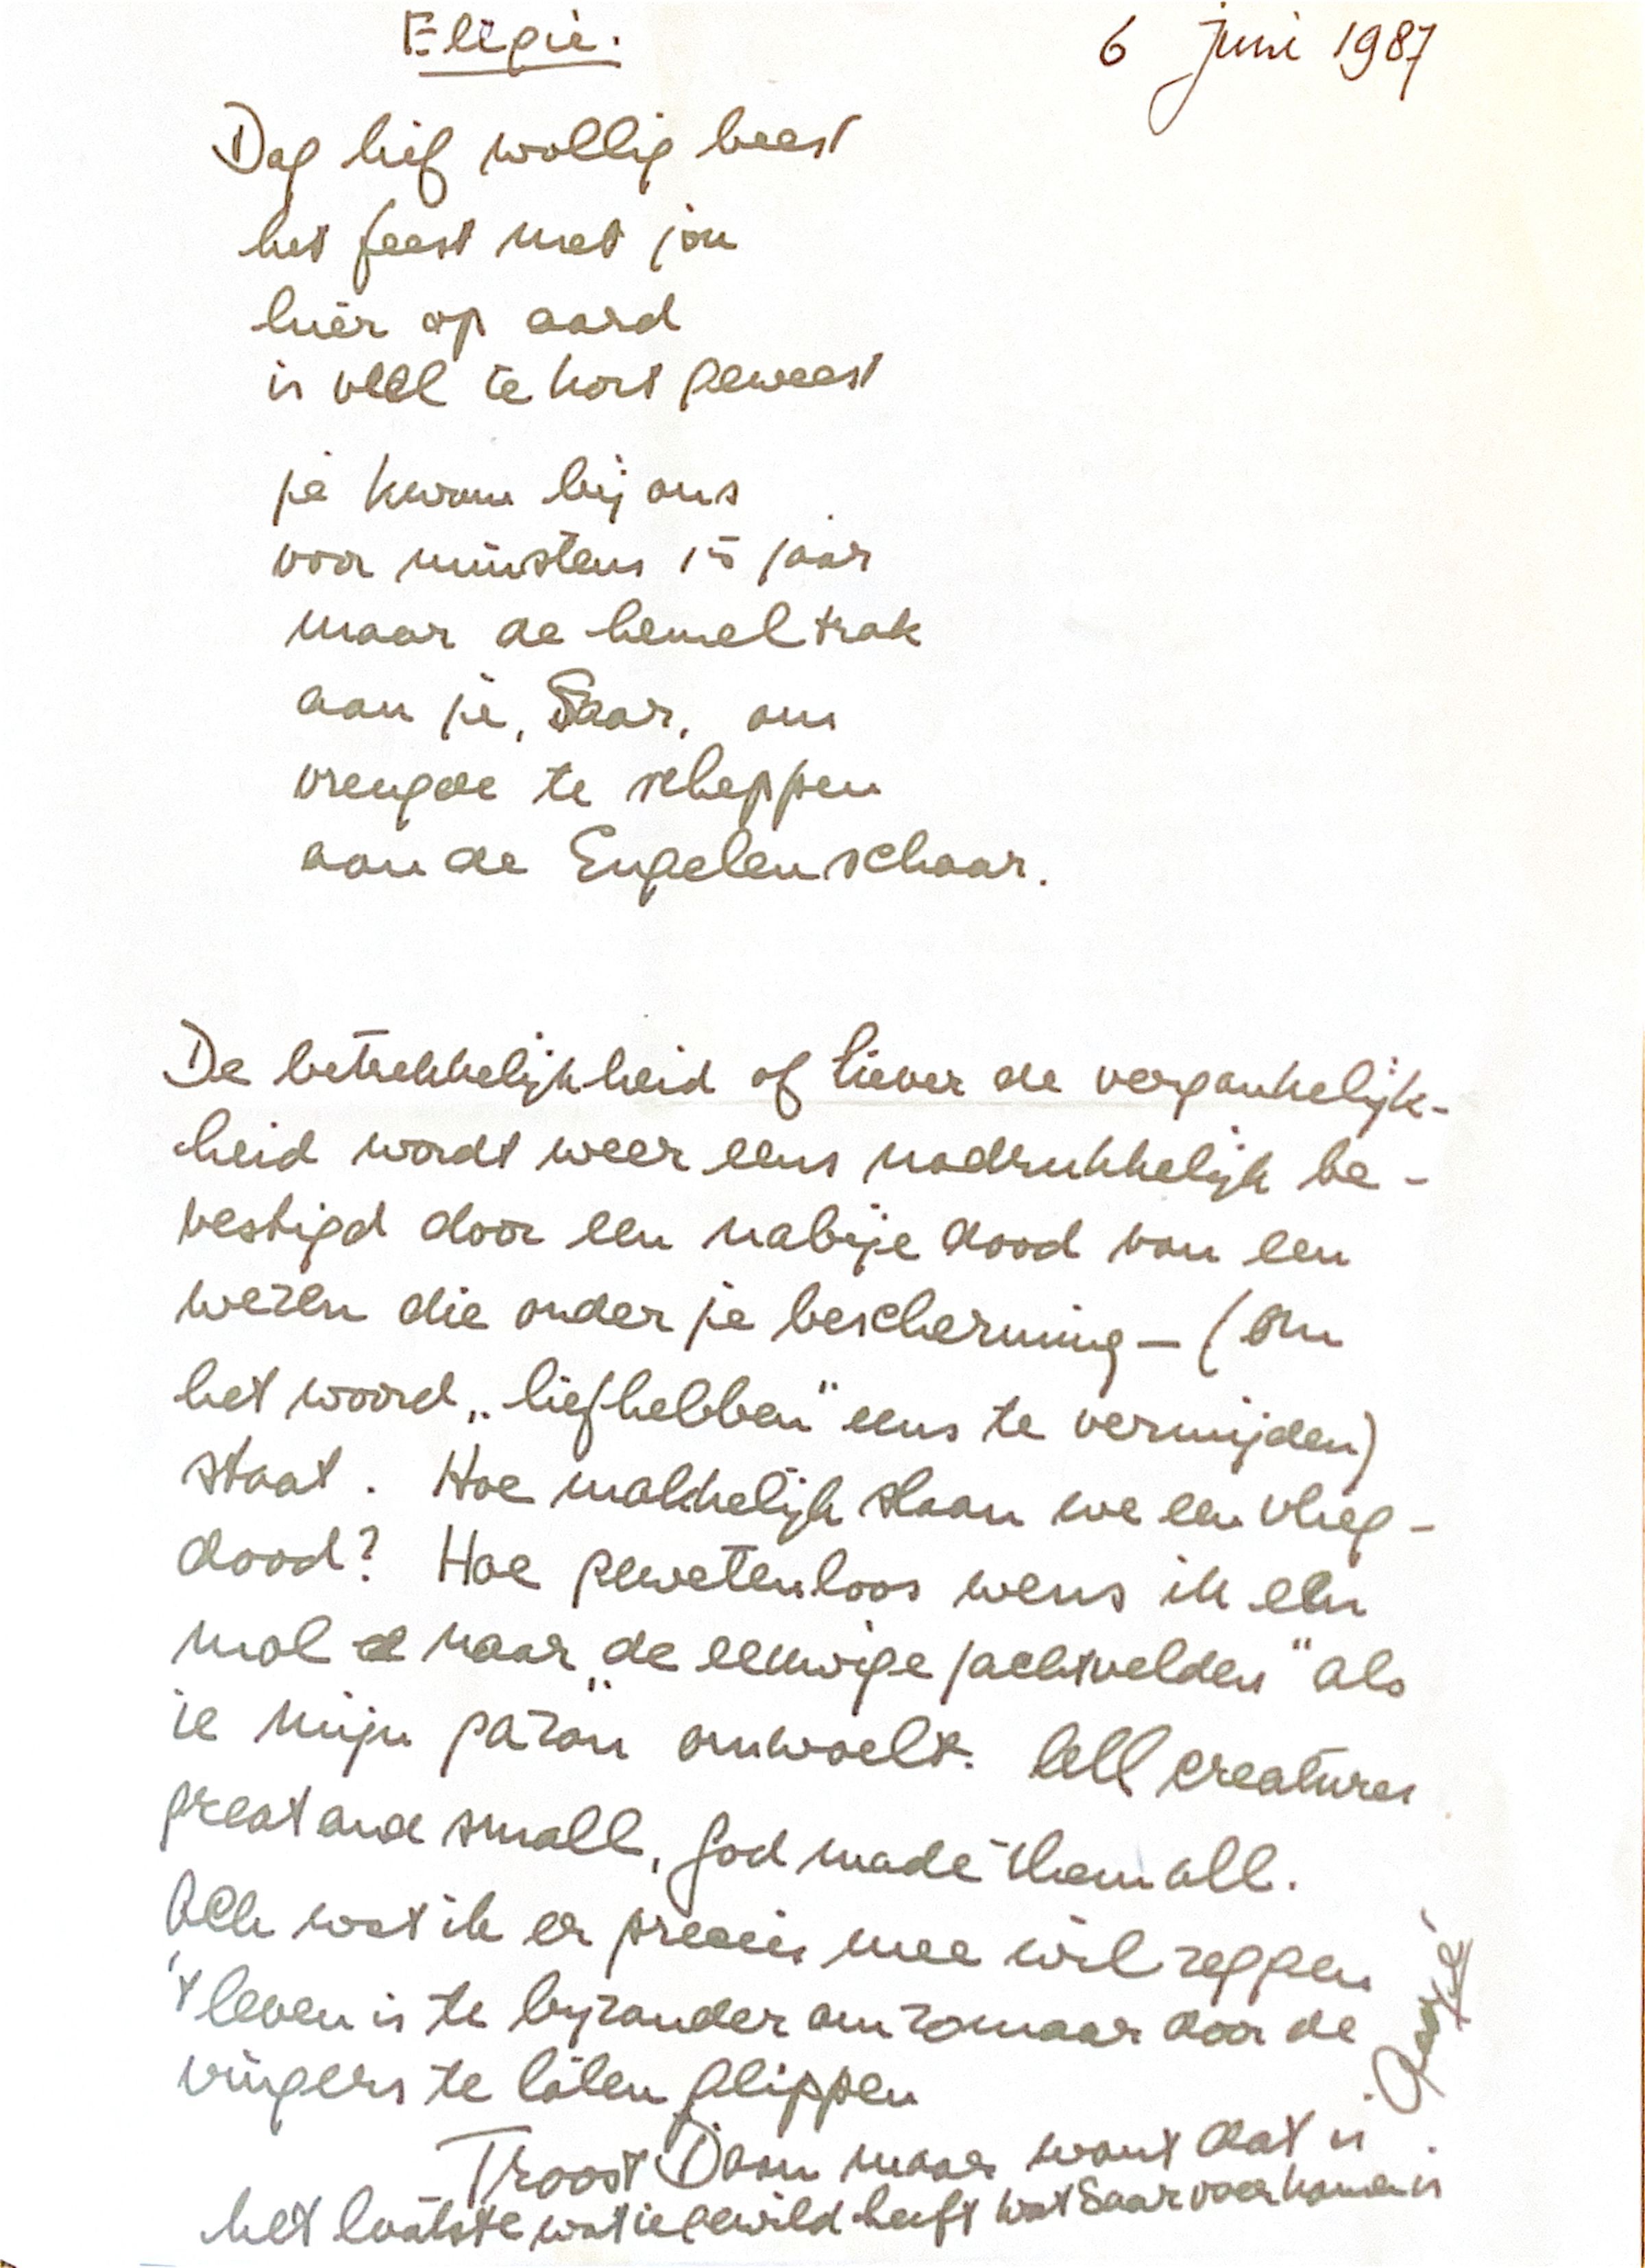 Elegie.
6 juni 1987
Dag lief wollig beest
het feest met jou
hier op aard
is veel te kort geweest
je kwam bij ons
voor minstens 15 jaar
maar de hemel trok
aan je, Saar, om
vreugde te scheppen
aan de Engelenschaar.
De betrekkelijkheid of liever de vergankelijk-
heid wordt weer eens nadrukkelijk be-
vestigd door een nabije dood van een
wezen die onder je bescherming – (om
het woord „liefhebben" eens te vermijden)
staat. Hoe makkelijk slaan we een vlieg -
dood? Hoe gewetenloos wens ik een
mol naar „de eeuwige jachtvelden" als
ie mijn gazon omwoelt. All creatures
great and small, God made them all.
Ach wat ik er precies mee wil zeggen
't leven is te byzonder om zomaar door de
vingers te laten glippen
Troost Dam maar want dat is
het laatste wat ie gewild heeft wat Saar voorkomen is